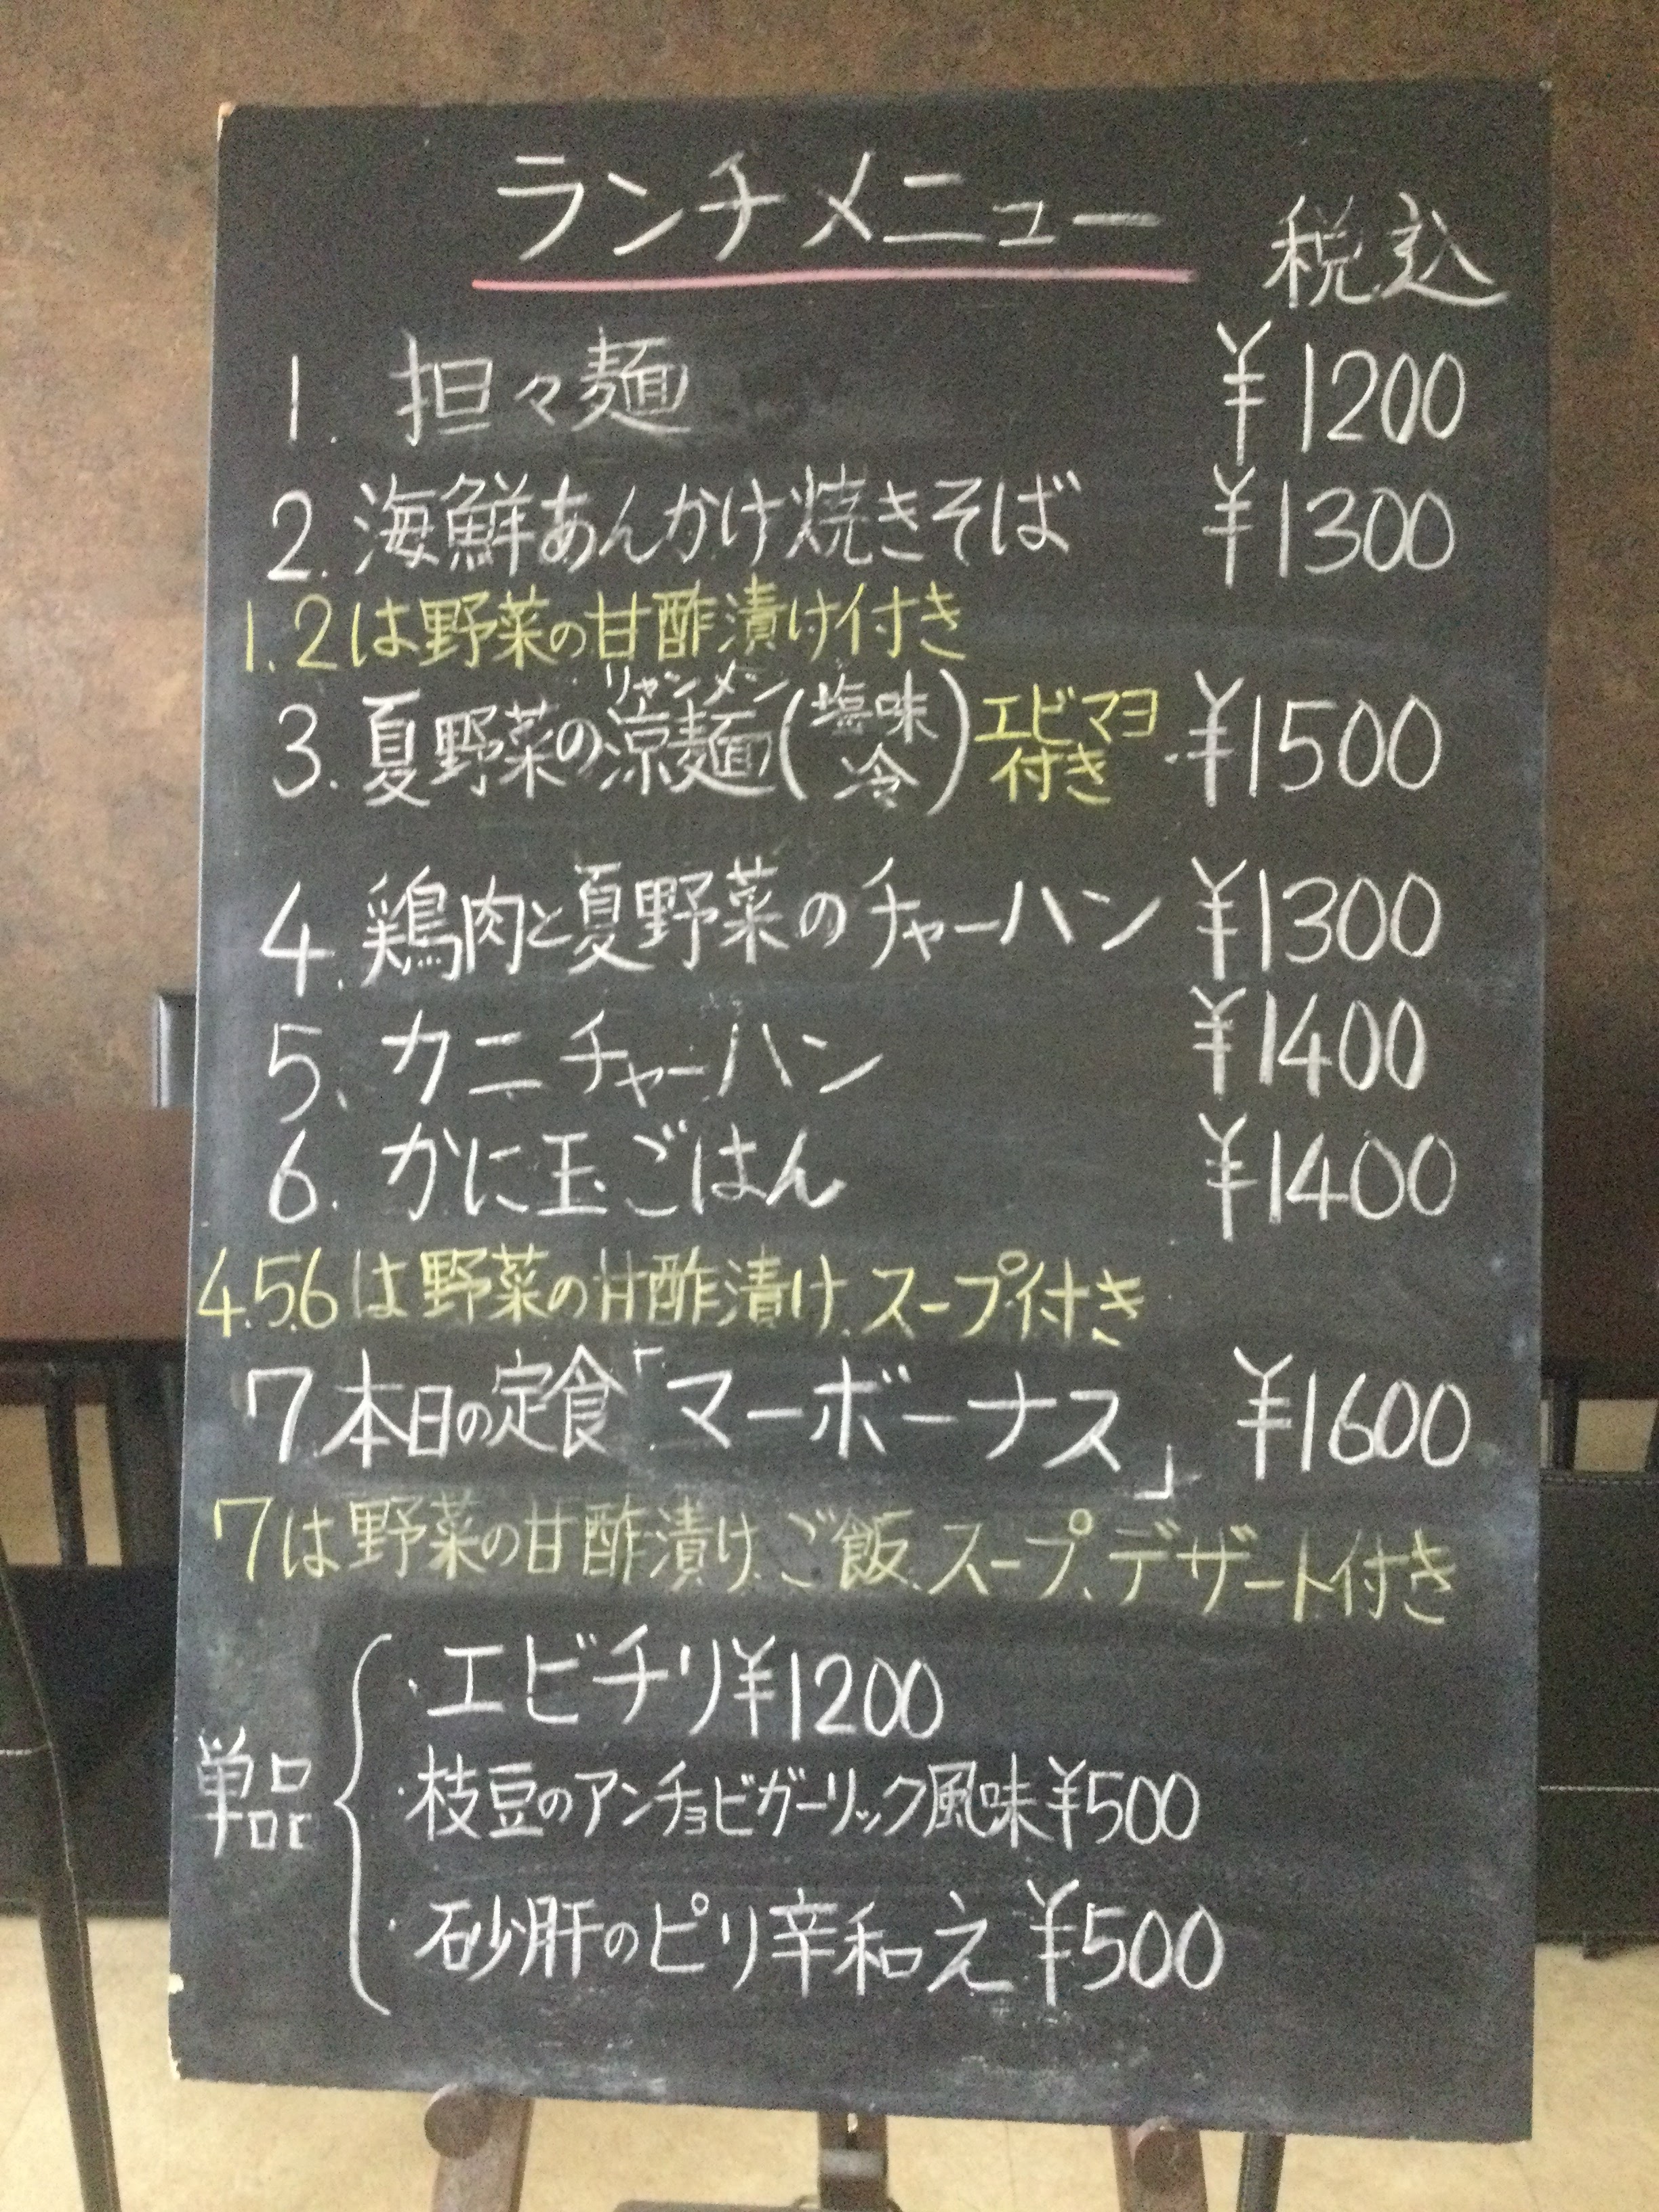 ランチメニュー 税込
1. 担々麺 ¥1200
2. 海鮮あんかけ焼きそば ¥1300
1.2は野菜の甘酢漬け付き
リャンメン
3. 夏野菜の涼麺(塩味冷)エビマヨ付き ¥1500
4. 鶏肉と夏野菜のチャーハン ¥1300
5. カニチャーハン ¥1400
6. かに玉ごはん ¥1400
4.5.6は野菜の甘酢漬け、スープ付き
7.本日の定食「マーボーナス」 ¥1600
7は野菜の甘酢漬け、ご飯、スープ、デザート付き
単品
・エビチリ¥1200
・枝豆のアンチョビガーリック風味¥500
・砂肝のピリ辛和え¥500